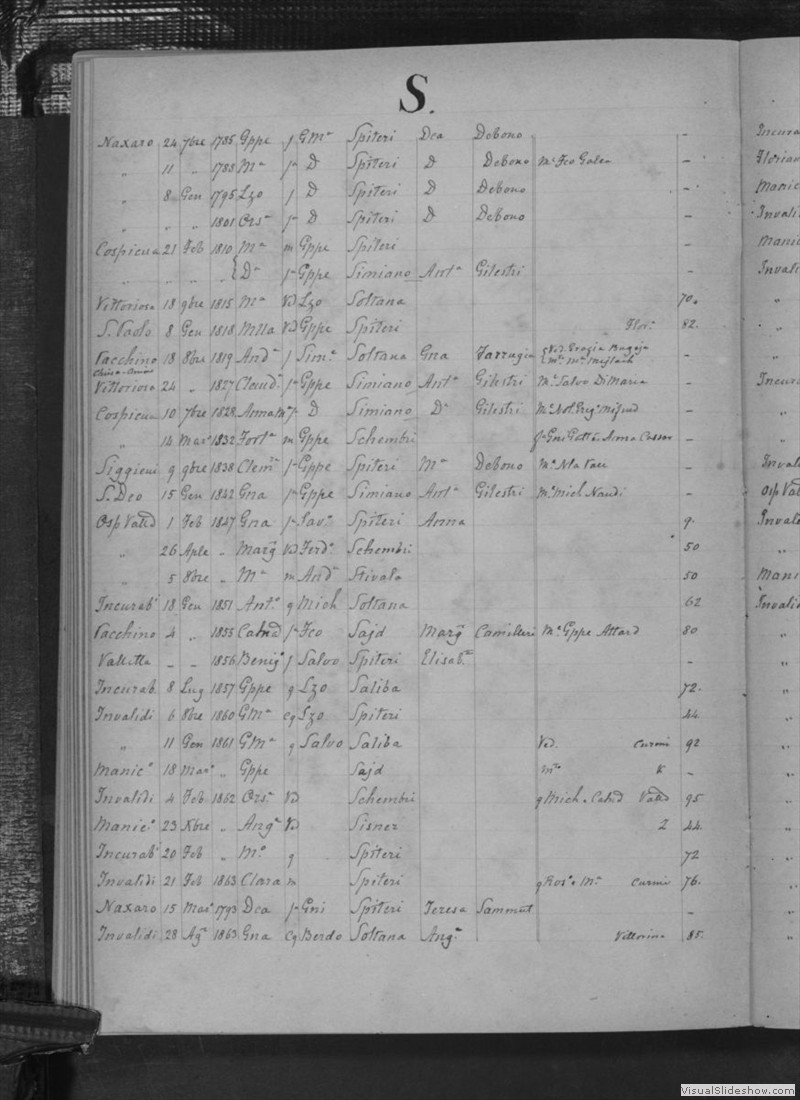 S.
Naxaro 24 7bre 1785 Gppe f GMª Spiteri Dea Debono -
" 11 " 1788 Mª fª D Spiteri D Debono Mª Fco Galea -
" 8 Gen 1795 Lzo f D Spiteri D Debono -
" " " 1801 Orsª fª D Spiteri D Debono -
Cospicua 21 Feb 1810 Mª m Gppe Spiteri -
" " " " Dª fª Gppe Simiano Antª Gilestri -
Vittoriosa 18 9bre 1815 Mª Vd Lzo Soltana 70.
S. Paolo 8 Gen 1818 Mlla Vd Gppe Spiteri 82.
Vacchino 18 8bre 1819 Andª f Simª Soltana Gna Farrugia -
Vittoriosa 24 " 1827 Claudª fª Gppe Simiano Antª Gilestri Mª Salvo Di Maria -
Cospicua 10 7bre 1828 Anna Mª fª D Simiano Dª Gilestri Mª Not. Mifsud -
" 14 Mar 1832 Fortª m Gppe Schembri fª Gni Anna Cassar -
Siggieui 9 9bre 1838 Clemª fª Gppe Spiteri Mª Debono -
S. Deo 15 Gen 1842 Gna fª Gppe Simiano Antª Gilestri Mª Mich Naudi -
Osp Valld 1 Feb 1847 Gna fª Savº Spiteri Anna 9.
" 26 Aple " Marg Vd Ferdº Schembri 50
" 5 8bre " Mª m Andª Stivala 50
Incurabi 18 Gen 1851 Antº q Mich Soltana 62
Vacchino 4 " 1855 fª Fco Sajd Marg Camilleri Mª Gppe Attard 80
Valletta - - 1856 Benigº f Salvo Spiteri Elisabª -
Incurab. 8 Lug 1857 Gppe q Lzo Saliba 72.
Invalidi 6 8bre 1860 GMª cq Lzo Spiteri 44.
" 11 Gen 1861 GMª q Salvo Saliba Vd. Curmi 92
Manicº 18 Mar " Gppe Sajd -
Invalidi 4 Feb 1862 Orsª Vd Schembri q Mich Valld 95
Manicº 23 Xbre " Angª Vd Sisner Z 44.
Incurabi 20 Feb " Mº q Spiteri 72
Invalidi 21 Feb 1863 Clara m Spiteri q Rosº Mª Curmi 76.
Naxaro 15 Mar 1793 Dea fª Gni Spiteri Teresa Sammut -
Invalidi 28 Agº 1863 Gna Cq Berdo Soltana Angª Vittoriosa 85.
VisualSlideshow.com